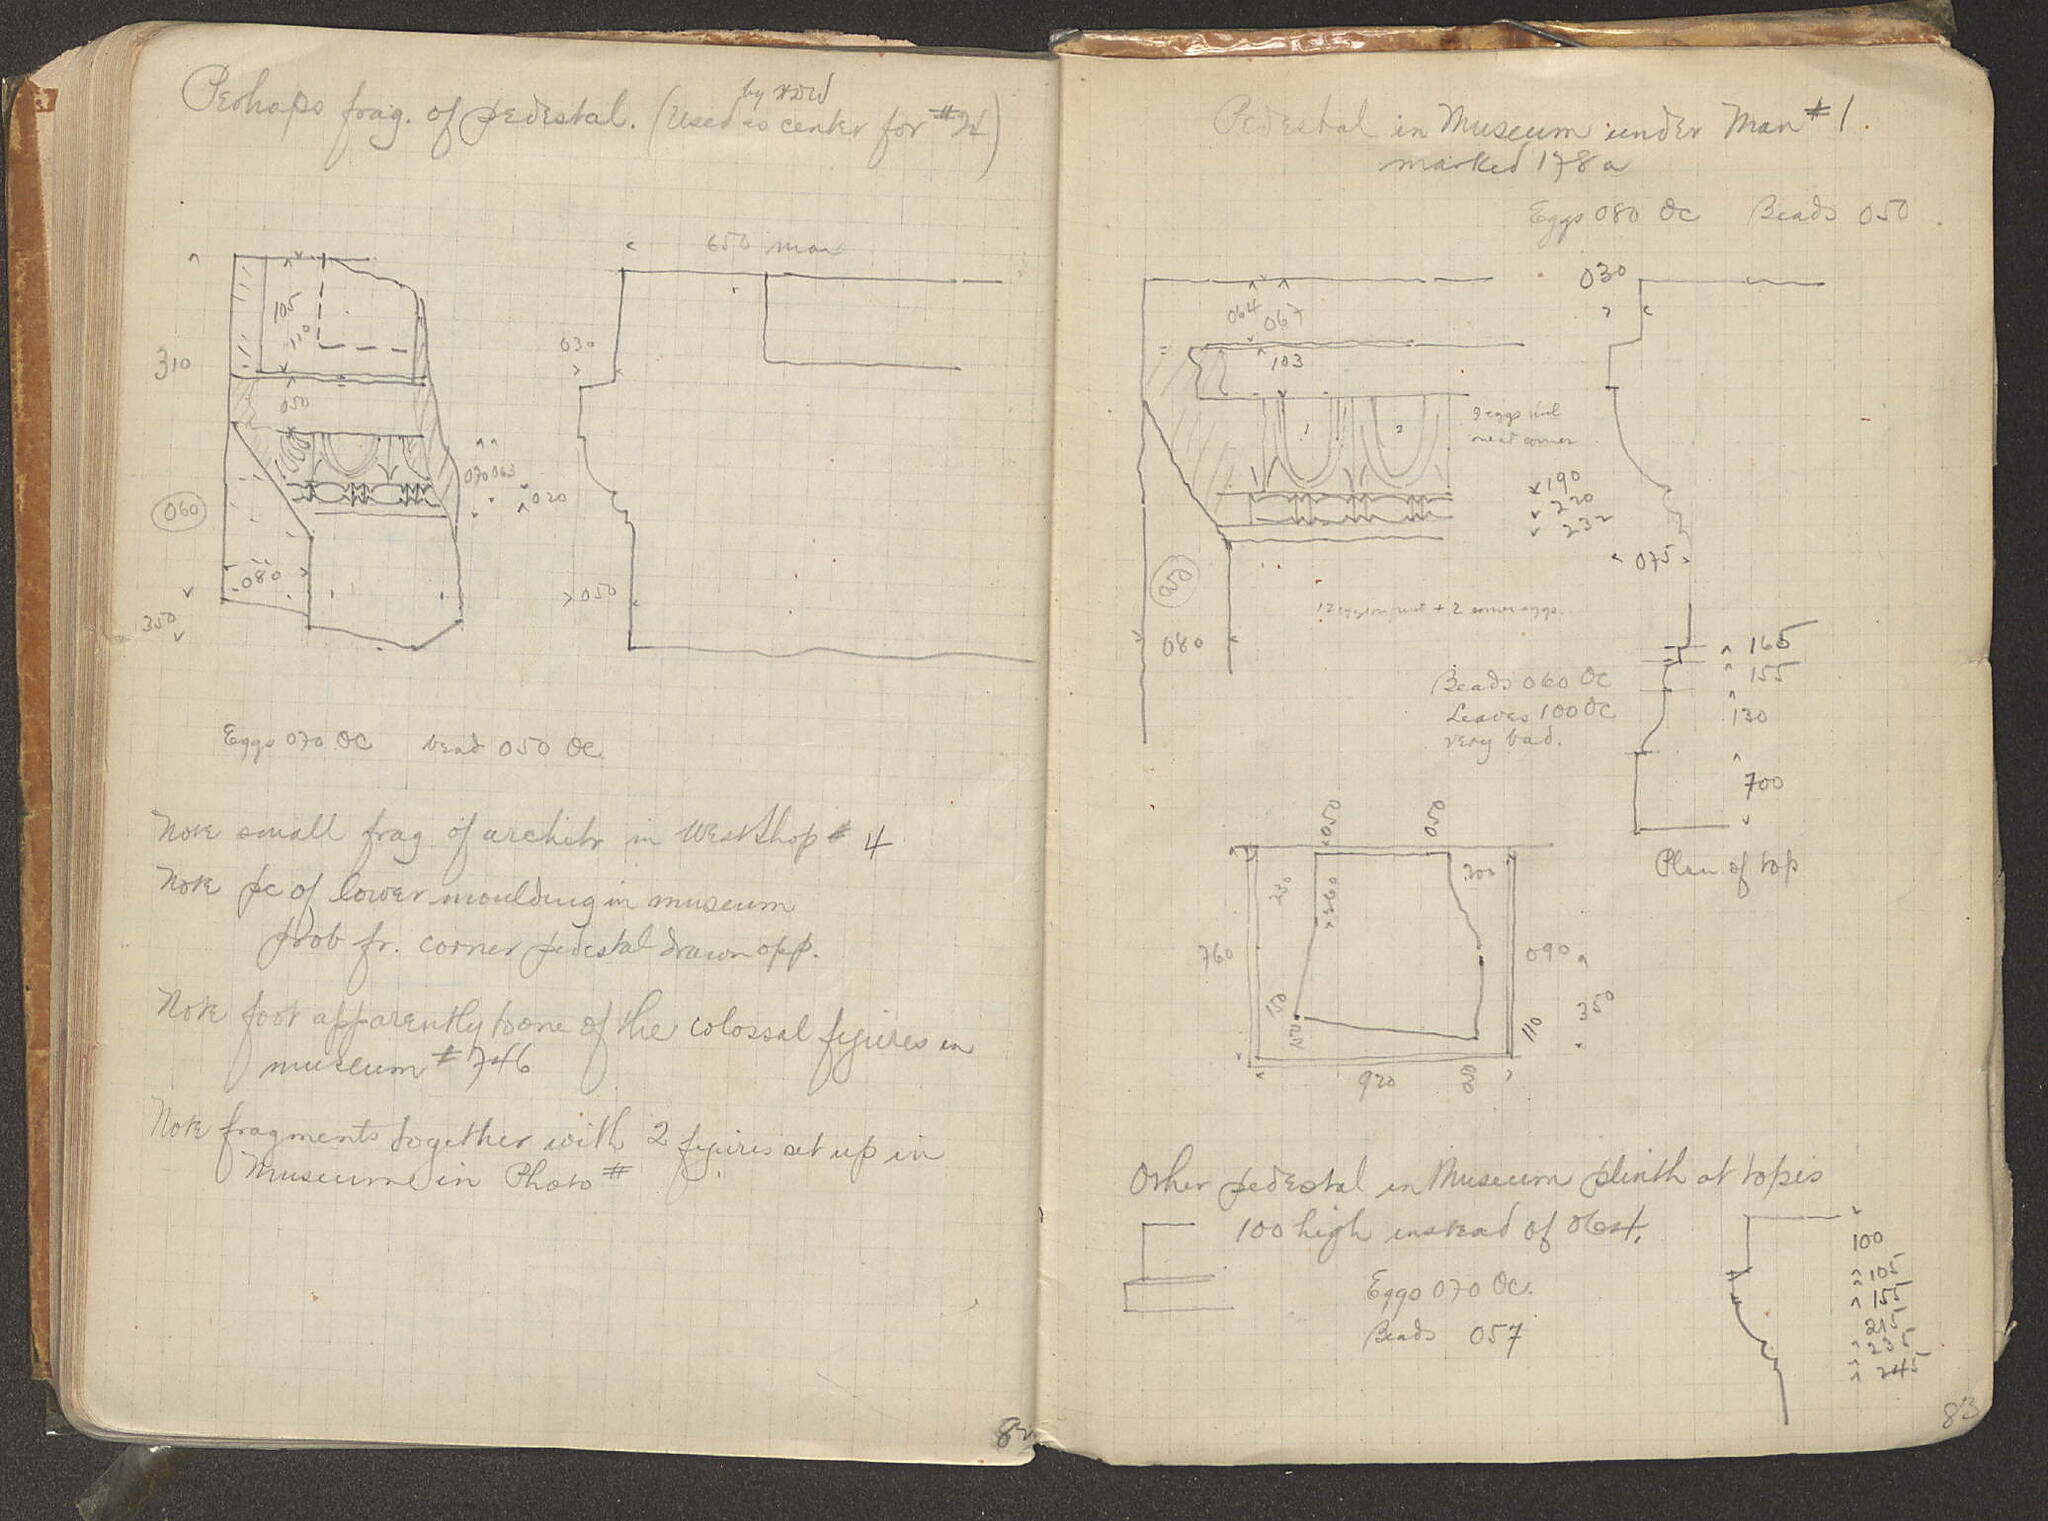 Perhaps frag. of pedestal. (Used as center for #24)
by HDW
650 max
105
110
310
030
050
070 063
020
060
080
050
350
Eggs 070 OC bead 050 OC.
Note small frag of architr in West Shop # 4
Note pc of lower moulding in museum
prob fr. corner pedestal drawn opp.
Note foot apparently to one of the colossal figures in
museum # 746
Note fragments together with 2 figures set up in
Museum in Photo #
82
Pedestal in Museum under Man #1.
marked 178a
Eggs 080 OC Beads 050
030
064 067
103
1 2
2 eggs
next corner
190
220
232
050
075
+ 2 corner eggs.
080
165
155
Beads 060 OC
Leaves 100 OC
very bad.
130
700
050 050
Plan of top
230 360 300
760 090
150
110 350
920 050
Other pedestal in Museum plinth at top is
100 high instead of 064.
100
Eggs 070 OC.
105
155
Beads 057
215
235
245
83